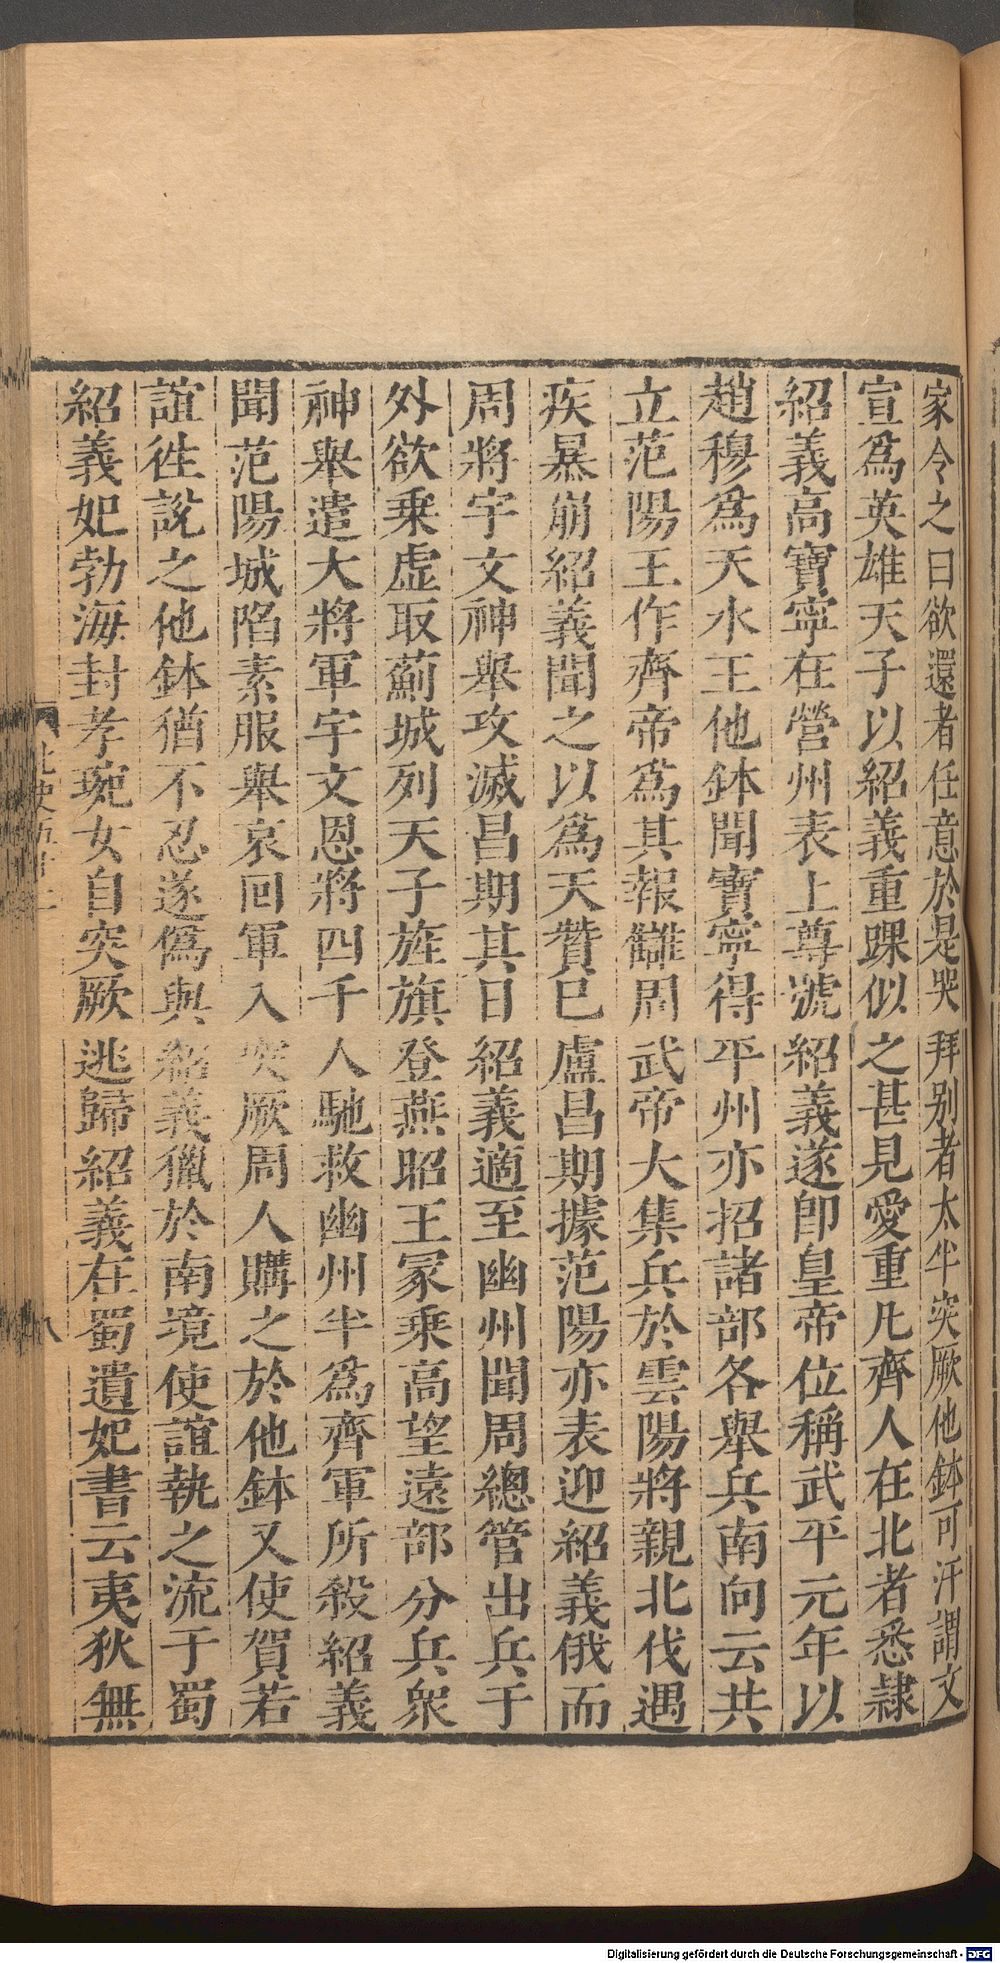 家令之曰欲還者任意於是哭拜别者太半突厥他鉢可汗謂文
宣爲英雄天子以紹義重踝似之甚見愛重凡齊人在北者悉隷
紹義高寶寧在營州表上尊號紹義遂卽皇帝位稱武平元年以
趙穆爲天水王他鉢聞寶寧得平州亦招諸部各舉兵南向云共
立范陽王作齊帝爲其報讎周武帝大集兵於雲陽將親北伐遇
疾暴崩紹義聞之以爲天贊已盧昌期據范陽亦表迎紹義俄而
周將宇文神舉攻滅昌期其日紹義適至幽州聞周總管出兵于
外欲乗虚取薊城列天子旌旗登燕昭王冢乗高望遠部分兵衆
神舉遣大將軍宇文恩將四千人馳救幽州半爲齊軍所殺紹義
聞范陽城陷素服舉哀回軍入突厥周人購之於他鉢又使賀若
誼徃説之他鉢猶不忍遂僞與紹義獵於南境使誼執之流于蜀
紹義妃勃海封孝琬女自突厥逃歸紹義在蜀遺妃書云夷狄無
八
Digitalisierung gefördert durch die Deutsche Forschungsgemeinschaft - DFG